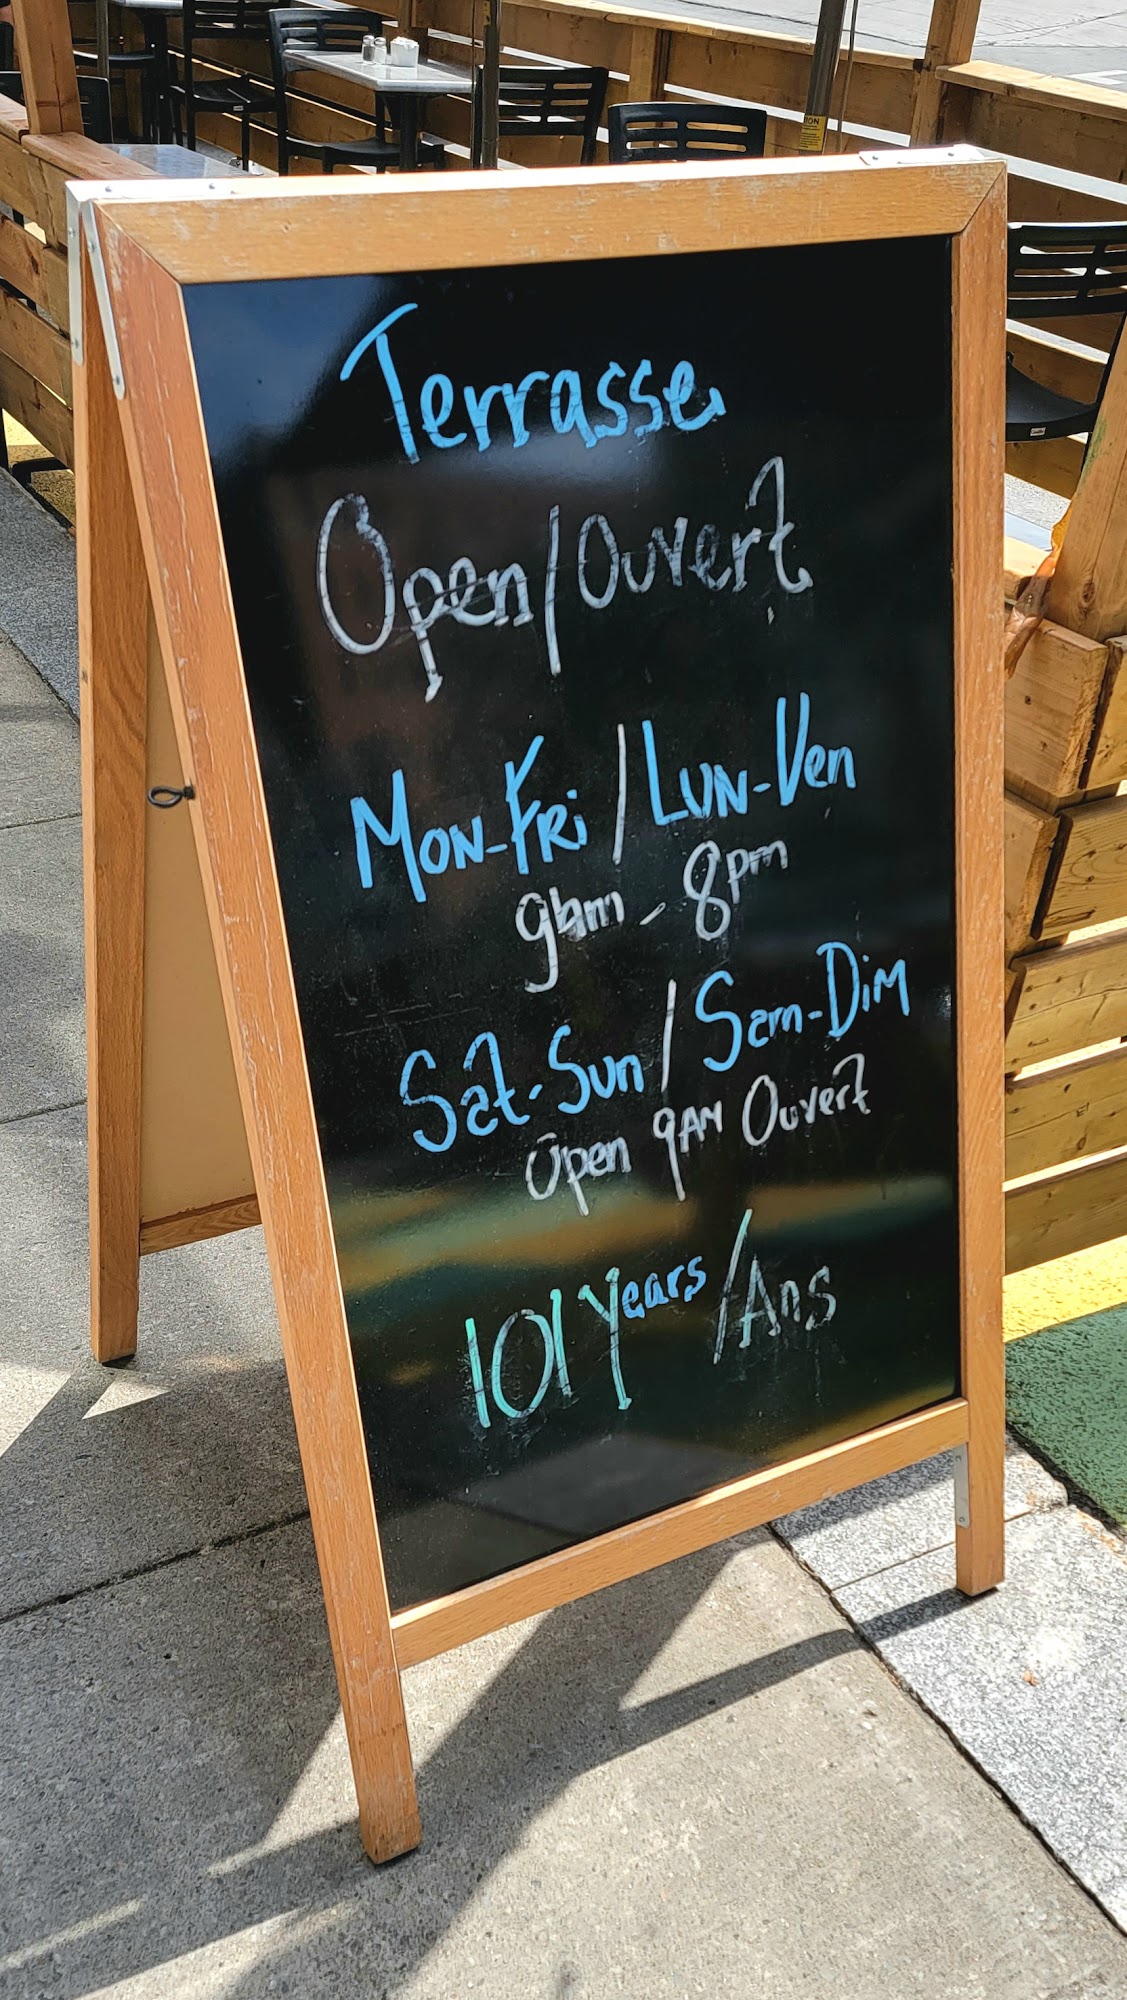 Terrasse
Open/Ouvert
Mon-Fri/Lun-Ven
9am - 8pm
Sat-Sun/Sam-Dim
Open 9AM Ouvert
101 Years/Ans